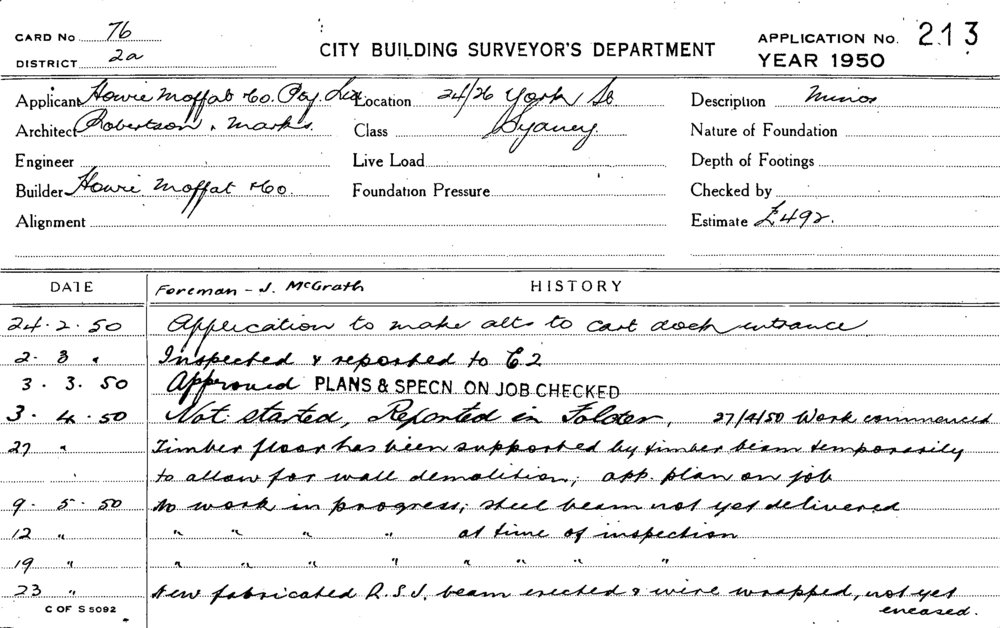 CARD No 76
DISTRICT 2a
CITY BUILDING SURVEYOR'S DEPARTMENT
APPLICATION No. 213
YEAR 1950
Applicant Howie Moffat & Co. Pty. Ltd. Location 24/26 York St Description Minor
Architect Robertson & Marks. Class Sydney. Nature of Foundation
Engineer Live Load Depth of Footings
Builder Howie Moffat & Co. Foundation Pressure Checked by
Alignment Estimate £492.
DATE Foreman - J. McGrath HISTORY
24. 2. 50 Application to make alts to cart dock entrance
2. 3 " Inspected & reported to C.2
3. 3. 50 Approved PLANS & SPECN. ON JOB CHECKED
3. 4. 50 Not started, Reported in Folder, 27/4/50 Work commenced
27 " Timber floor has been supported by timber beam temporarily
to allow for wall demolition; app. plan on job
9. 5. 50 No work in progress; steel beam not yet delivered
12 " " " " " at time of inspection
19 " " " " " " " " " "
23 " New fabricated R.S.J. beam erected & wire wrapped, not yet
encased.
C OF S 5092